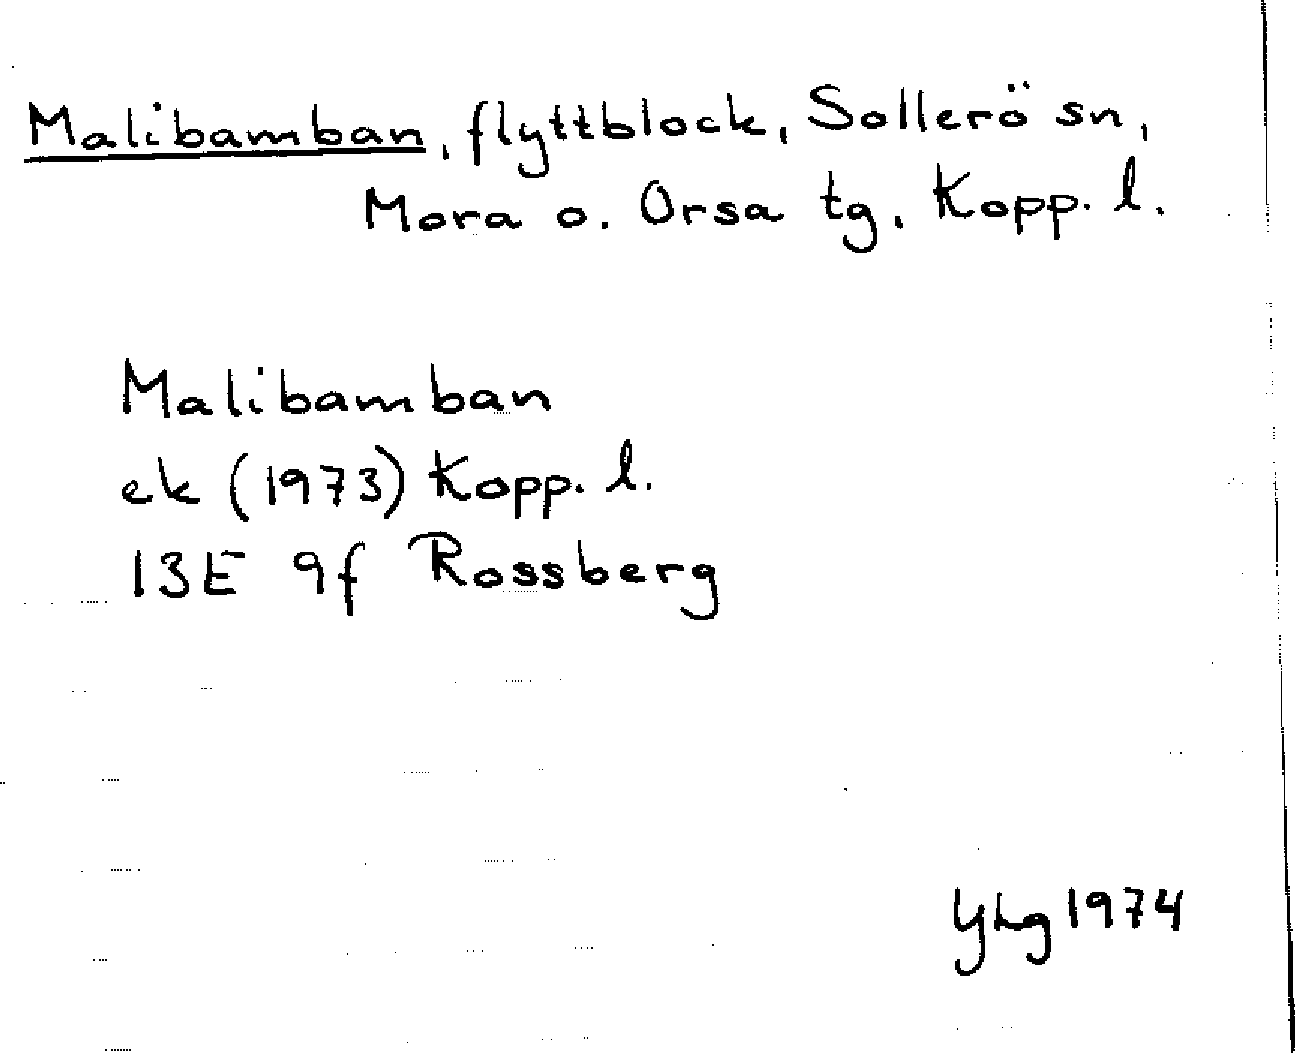 Malibamban, flyttblock, Sollerö sn,
Mora o. Orsa tg, Kopp. l.
Malibamban
ek (1973) Kopp. l.
13E 9f Rossberg
YLg 1974